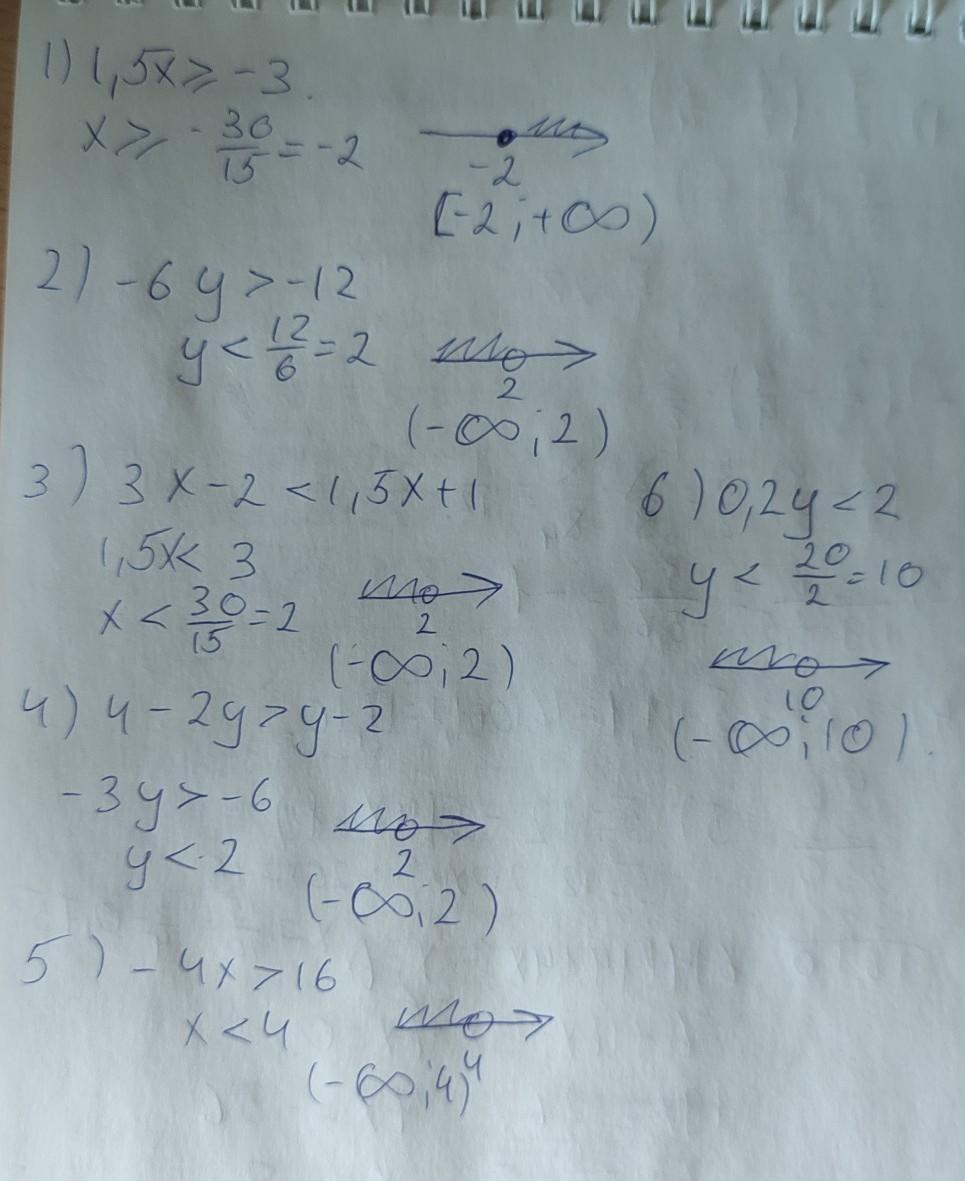 1) 1,5x ⩾ -3.
x ⩾ -30/15 = -2
-2
[-2; +∞)
2) -6y > -12
y < 12/6 = 2
2
(-∞; 2)
3) 3x - 2 < 1,5x + 1
1,5x < 3
x < 30/15 = 2
2
(-∞; 2)
4) 4 - 2y > y - 2
-3y > -6
y < 2
2
(-∞; 2)
5) -4x > 16
x < 4
4
(-∞; 4)
6) 0,2y < 2
y < 20/2 = 10
10
(-∞; 10).